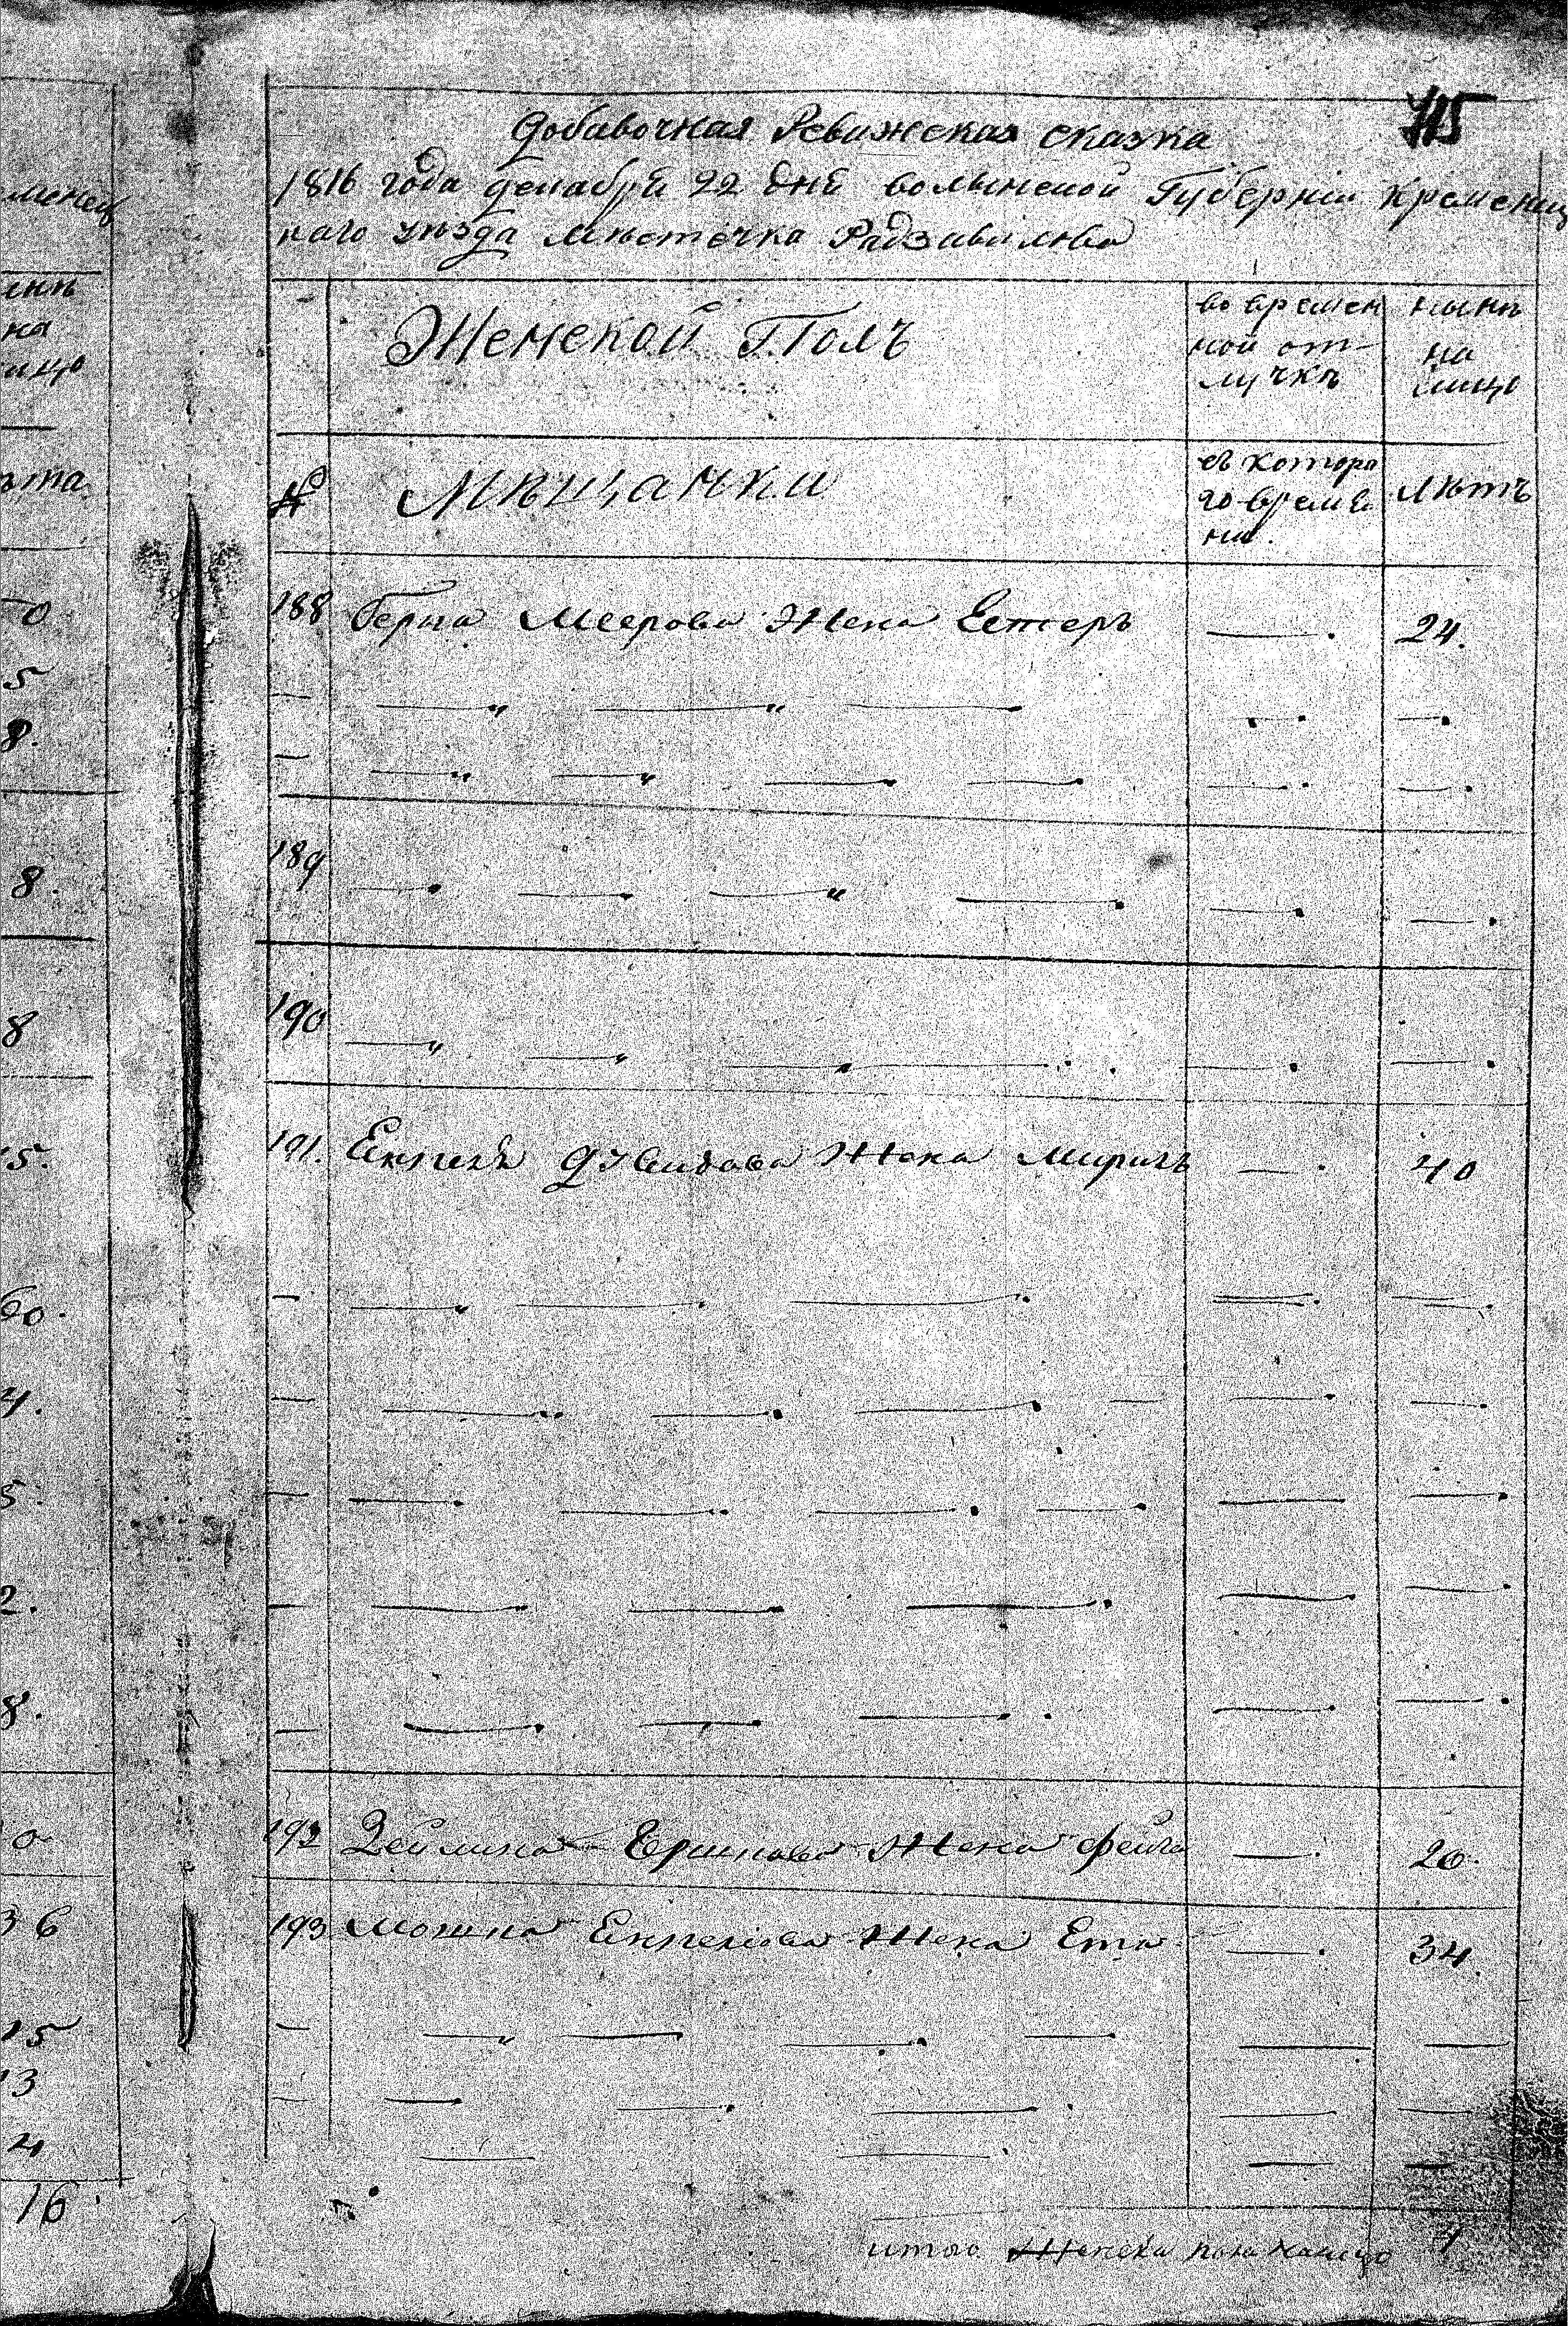 115
Добавочная Ревижская сказка
1816 года декабря 22 дня волынской Губерніи Кременец
каго уѣзда мѣстечка Радзивилова
Женской Полъ
во времен
ной от-
лучкѣ
нынѣ
на
лицо
№ Мѣщанки
съ которо
го време
ни.
лѣтъ
188 Герша Меерова Жена Естеръ — 24.
189
190
191. Давидова Жена Мириль — 40
192 Зейлика Жена Фейга — 20.
193 Мошка Жена Ета — 34.
итого Женска пола налицо
менец
на
лицо
ѣта
0
5
8.
8.
8
15.
60.
4.
5.
2.
8.
0
36
15
13
4
16